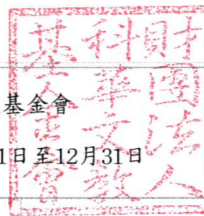 財團法人
科華文教
基金會
基金會
1日至12月31日